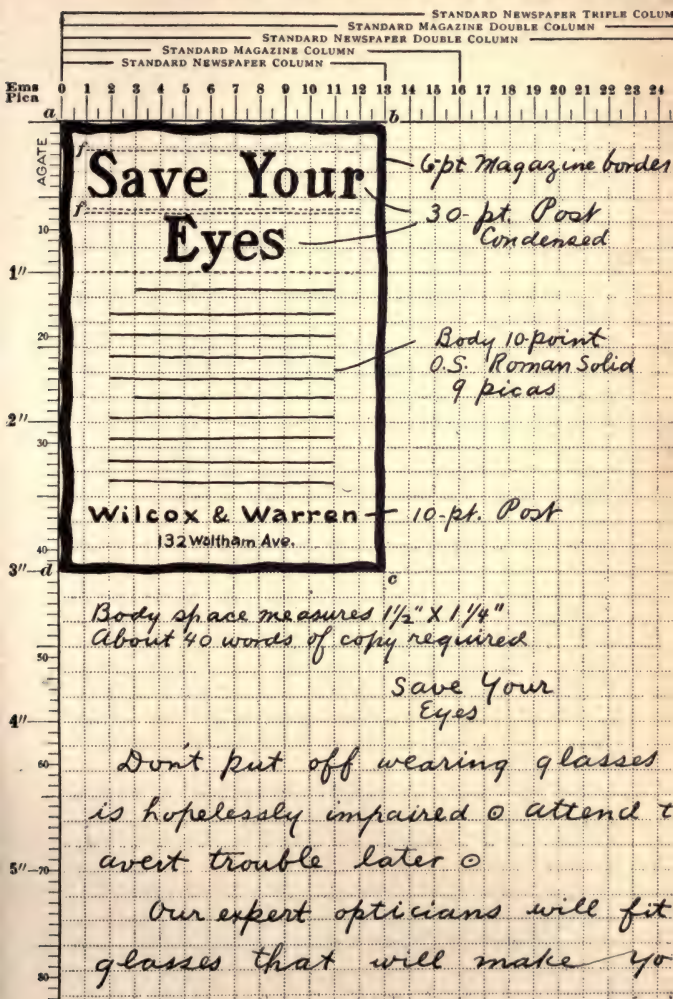 STANDARD NEWSPAPER TRIPLE COLUM
STANDARD MAGAZINE DOUBLE COLUMN
STANDARD NEWSPAPER DOUBLE COLUMN
STANDARD MAGAZINE COLUMN
STANDARD NEWSPAPER COLUMN
Ems
Pica
0 1 2 3 4 5 6 7 8 9 10 11 12 13 14 15 16 17 18 19 20 21 22 23 24
a b
AGATE
f
Save Your
f
Eyes
6-pt Magazine border
30-pt. Post
Condensed
10
1"
20
Body 10-point
O.S. Roman Solid
9 picas
2"
30
Wilcox & Warren
10-pt. Post
132 Waltham Ave.
40
3" d c
Body space measures 1 1/2" X 1 1/4"
About 40 words of copy required
50
Save Your
Eyes
4"
Don't put off wearing glasses
60
is hopelessly impaired ⊙ attend t
avert trouble later ⊙
5" 70
Our expert opticians will fit
glasses that will make yo
80